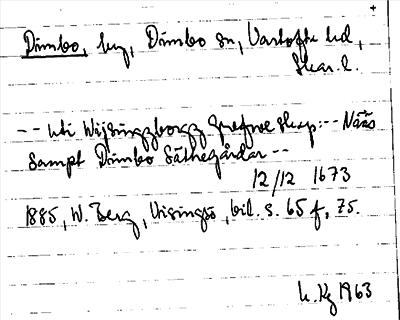 Dimbo, by, Dimbo sn, Vartofta hd,
Skar. l.
-- uti Wijsingzborgz Grefweskap: -- Nääs
sampt Dimbo Säthegårdar --
12/12 1673
1885, W. Berg, Visingsö, bil. s. 65 f, 75.
1963